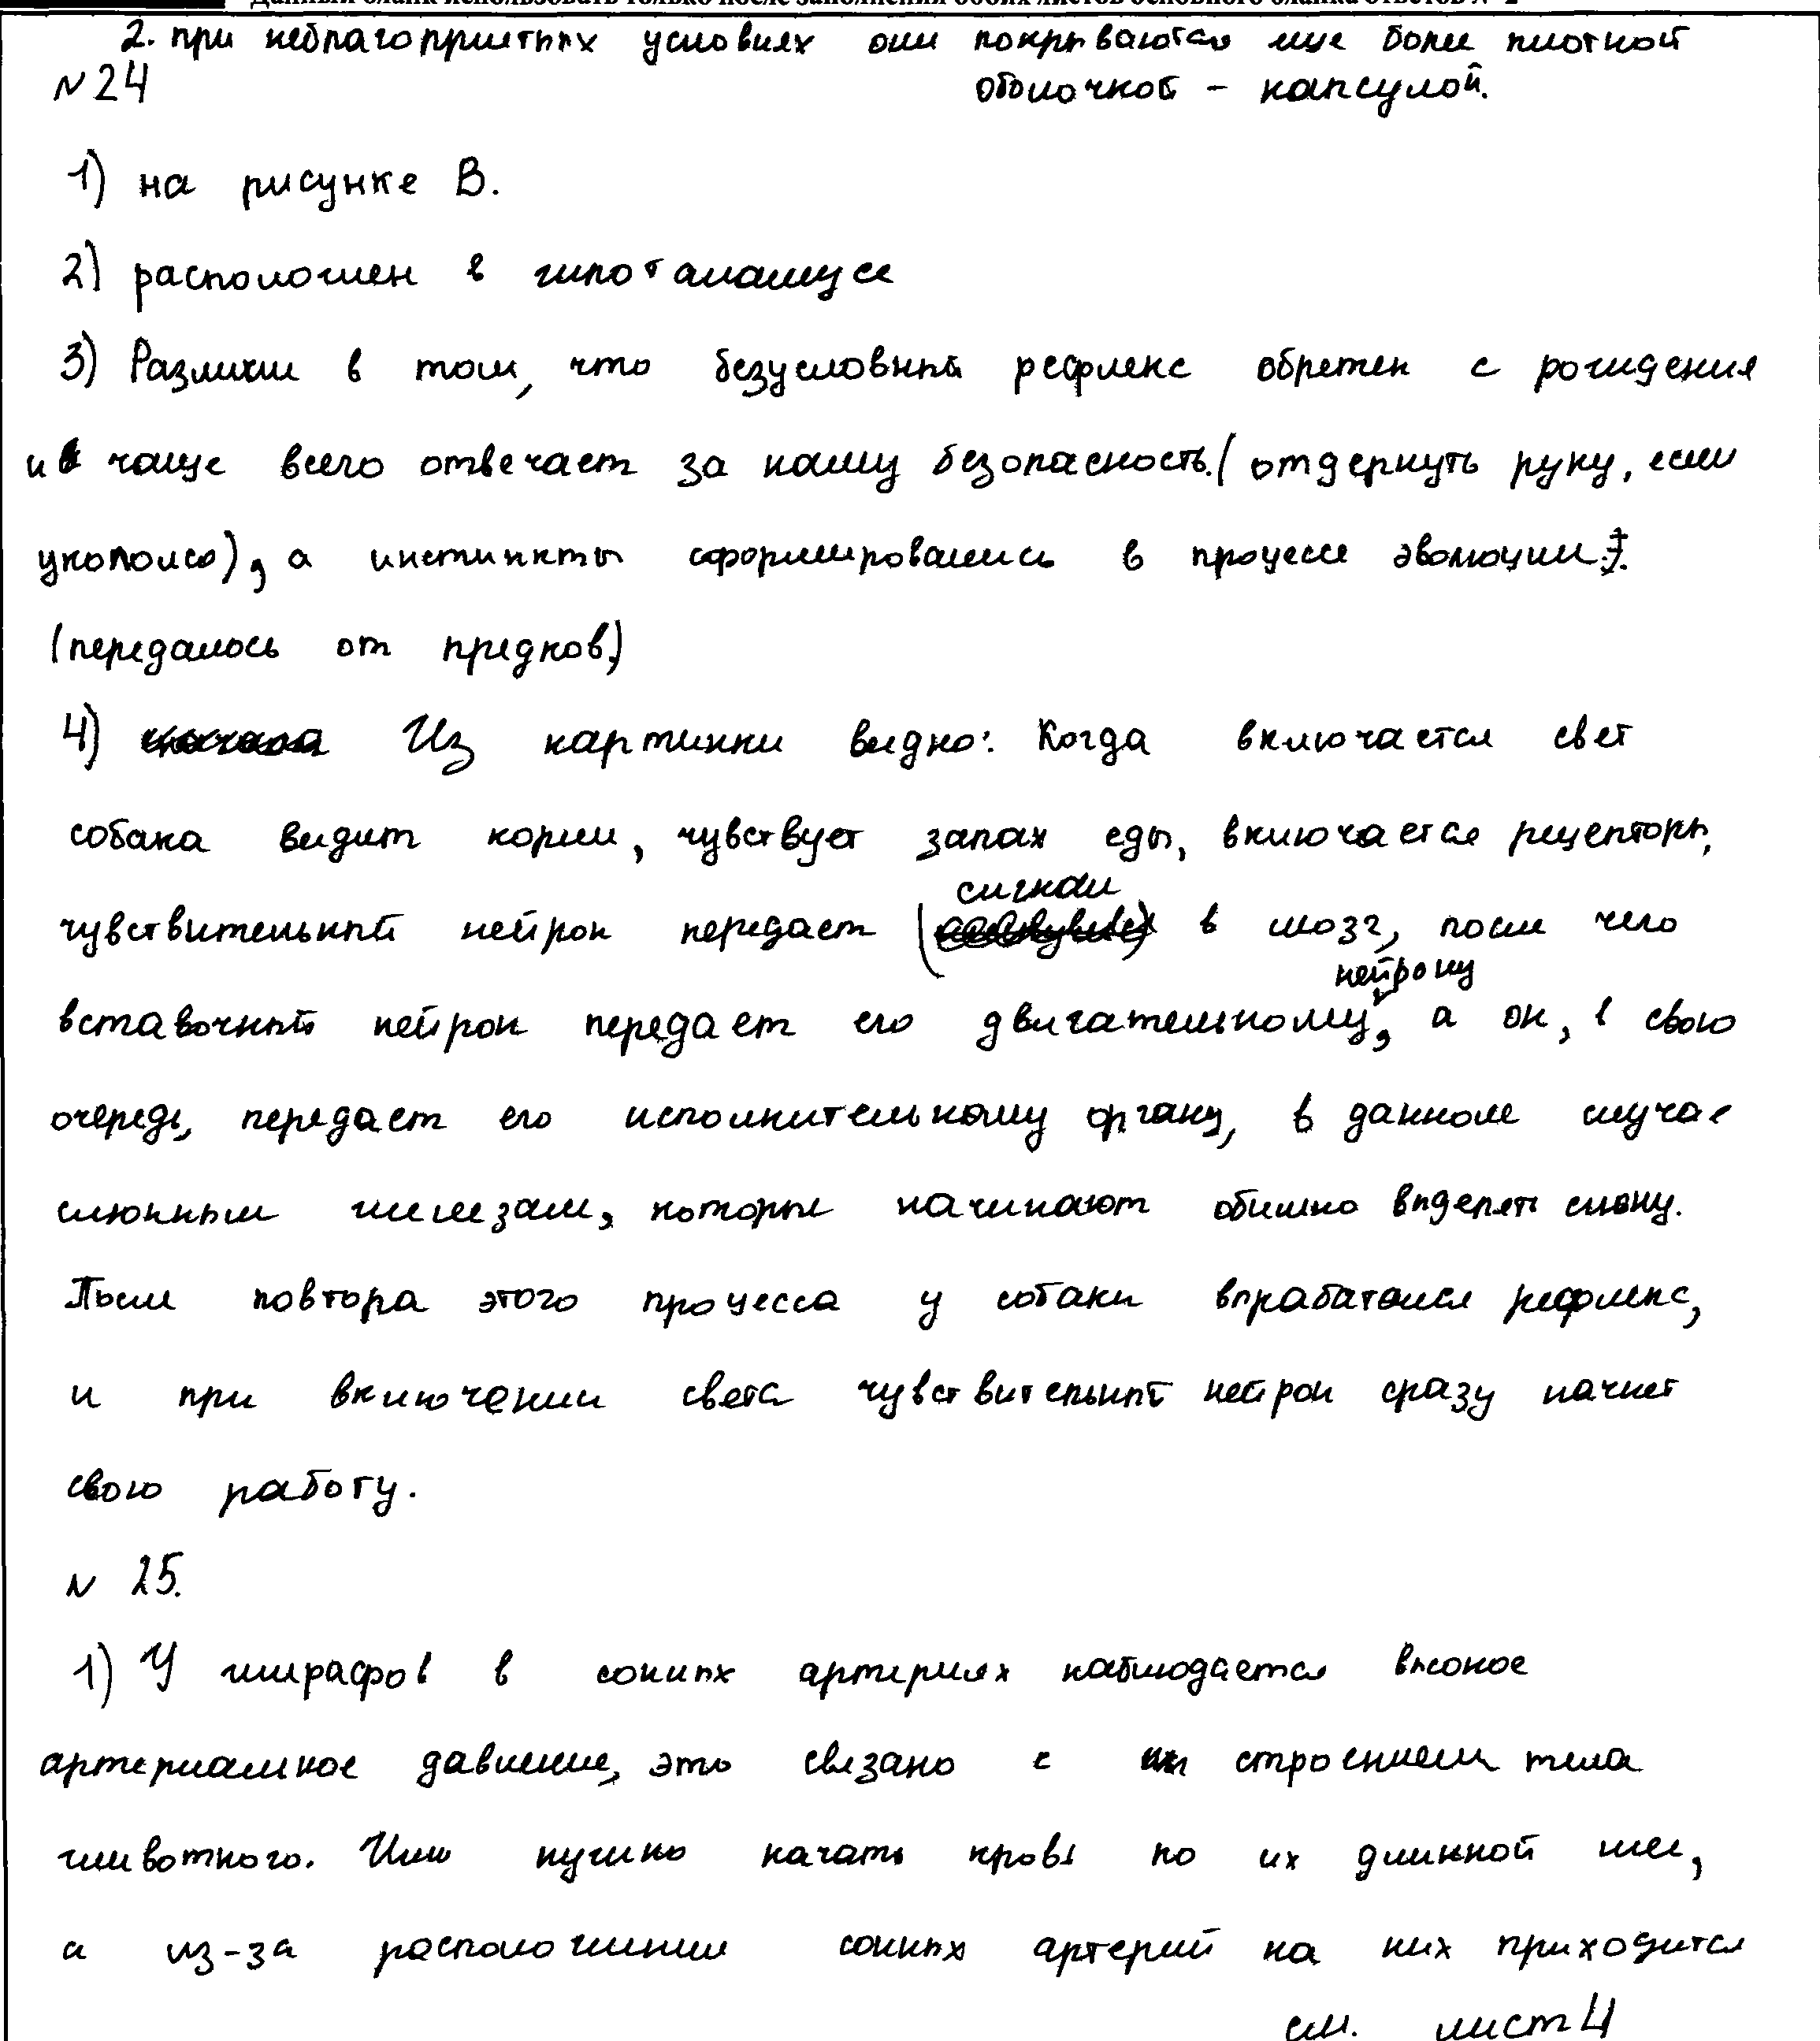 Данный бланк использовать только после заполнения обоих листов основного бланка ответов № 2
2. при неблагоприятных условиях они покрываются еще более плотной
оболочкой - капсулой.
№24
1) на рисунке В.
2) расположен в гипоталамусе
3) Различия в том, что безусловный рефлекс обретен с рождения
и чаще всего отвечает за нашу безопасность. (отдернуть руку, если
укололся), а инстинкты сформировались в процессе эволюции.
(передалось от предков)
4) Из картинки видно: Когда включается свет
собака видит корм, чувствует запах еды, включается рецепторы,
чувствительный нейрон передает сигнал в мозг, после чего
вставочный нейрон передает его двигательному нейрону, а он, в свою
очередь, передает его исполнительному органу, в данном случае
слюнным железам, которые начинают обильно выделять слюну.
После повтора этого процесса у собаки выработался рефлекс,
и при включении света чувствительный нейрон сразу начнет
свою работу.
№ 25.
1) У жирафов в сонных артериях наблюдается высокое
артериальное давление, это связано с строением тела
животного. Им нужно качать кровь по их длинной шее,
а из-за расположения сонных артерий на них приходится
см. лист 4